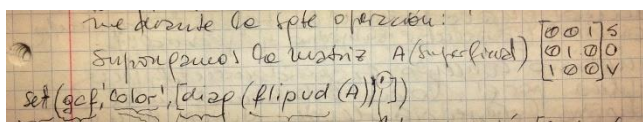 me durante la spte operación:
Supongamos la matriz A (superficial) [0 0 1] S
[0 1 0] O
[1 0 0] V
set(gcf,'color',[diap(flipud(A))'])